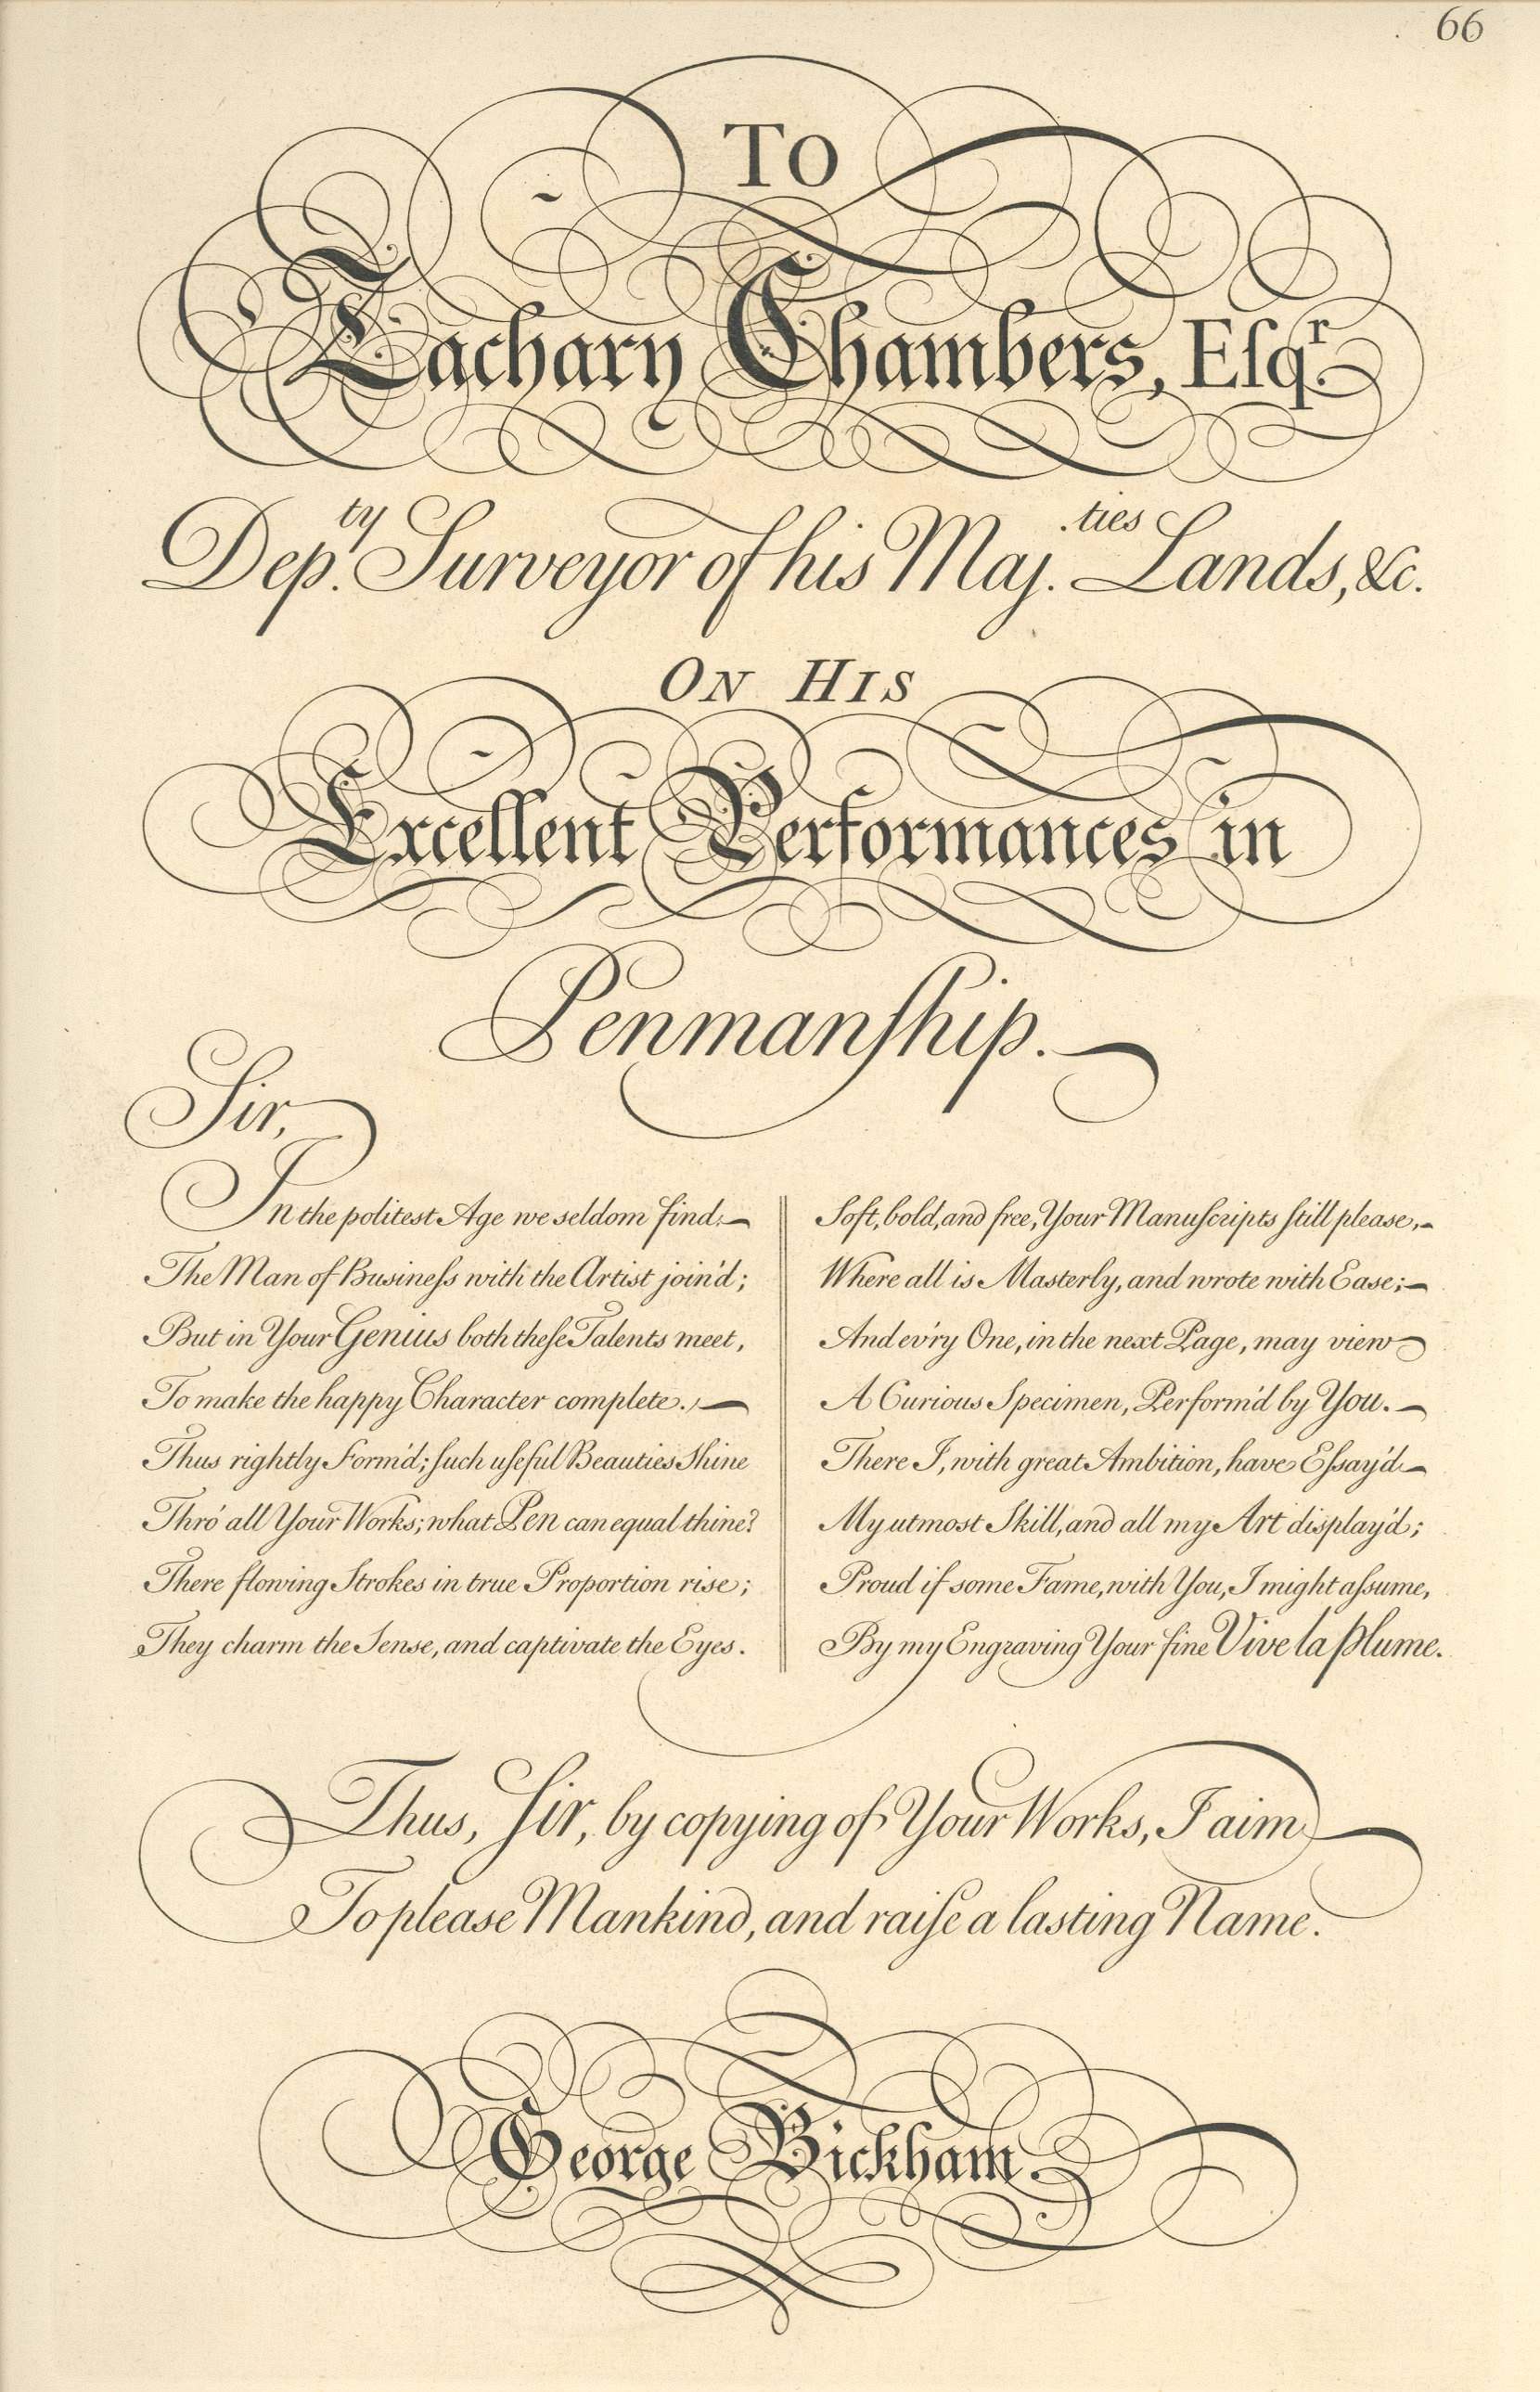 66
To
Zachary Chambers, Eſqr.
Depty. Surveyor of his Maj.ties Lands, &c.
On His
Excellent Performances in
Penmanſhip.
Sir,
In the politest Age we seldom find
The Man of Buſineſs with the Artist join'd;
But in Your Genius both theſe Talents meet,
To make the happy Character complete.
Thus rightly Form'd; ſuch uſeful Beauties Shine
Thro' all Your Works; what Pen can equal thine?
There flowing Strokes in true Proportion rise;
They charm the Sense, and captivate the Eyes.
Soft, bold, and free, Your Manuſcripts ſtill please,
Where all is Masterly, and wrote with Ease;
And ev'ry One, in the next Page, may view
A Curious Specimen, Perform'd by You.
There I, with great Ambition, have Eſsay'd
My utmost Skill, and all my Art display'd;
Proud if some Fame, with You, I might aſsume,
By my Engraving Your fine Vive la plume.
Thus, Sir, by copying of Your Works, I aim
To please Mankind, and raiſe a lasting Name.
George Bickham.